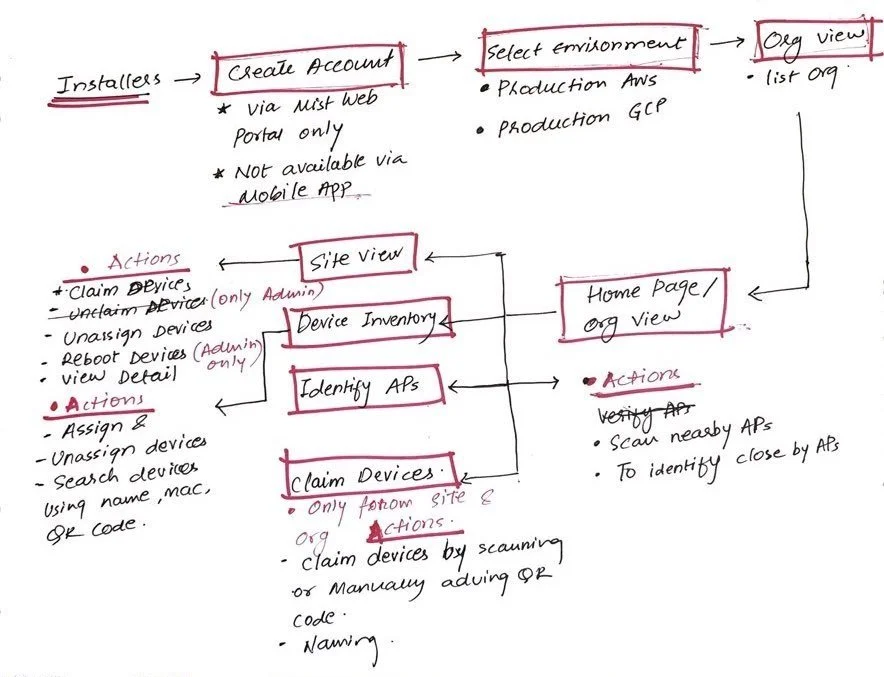 Installers
Create Account
* Via Mist Web
Portal only
* Not available via
Mobile APP.
Select Environment
• Production AWS
• Production GCP
Org View
• list Org.
Home Page/
Org View
Site View
• Actions
* Claim Devices
- Unclaim Devices (only Admin)
- Unassign Devices
- Reboot Devices (Admin
only)
• View Detail
Device Inventory
• Actions
- Assign &
- Unassign devices
- Search devices
Using name, mac,
QR code.
Identify APs
• Actions
Verify APs
• Scan nearby APs
• To identify close by APs
Claim Devices.
• Only forom site &
org Actions.
- Claim devices by scanning
or Manually adving QR
code.
- Naming.